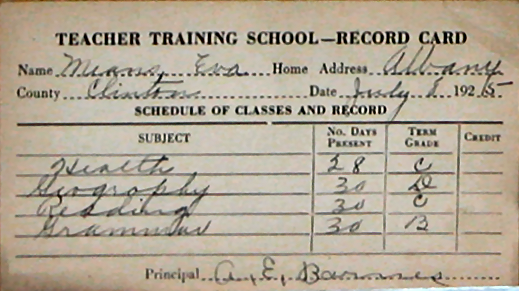 TEACHER TRAINING SCHOOL—RECORD CARD
Name Means, Eva Home Address Albany
County Clinton Date July 8 1925
SCHEDULE OF CLASSES AND RECORD
SUBJECT No. DAYS PRESENT TERM GRADE CREDIT
Health 28 C
Geography 30 D
Reading 30 C
Grammar 30 B
Principal A. E.